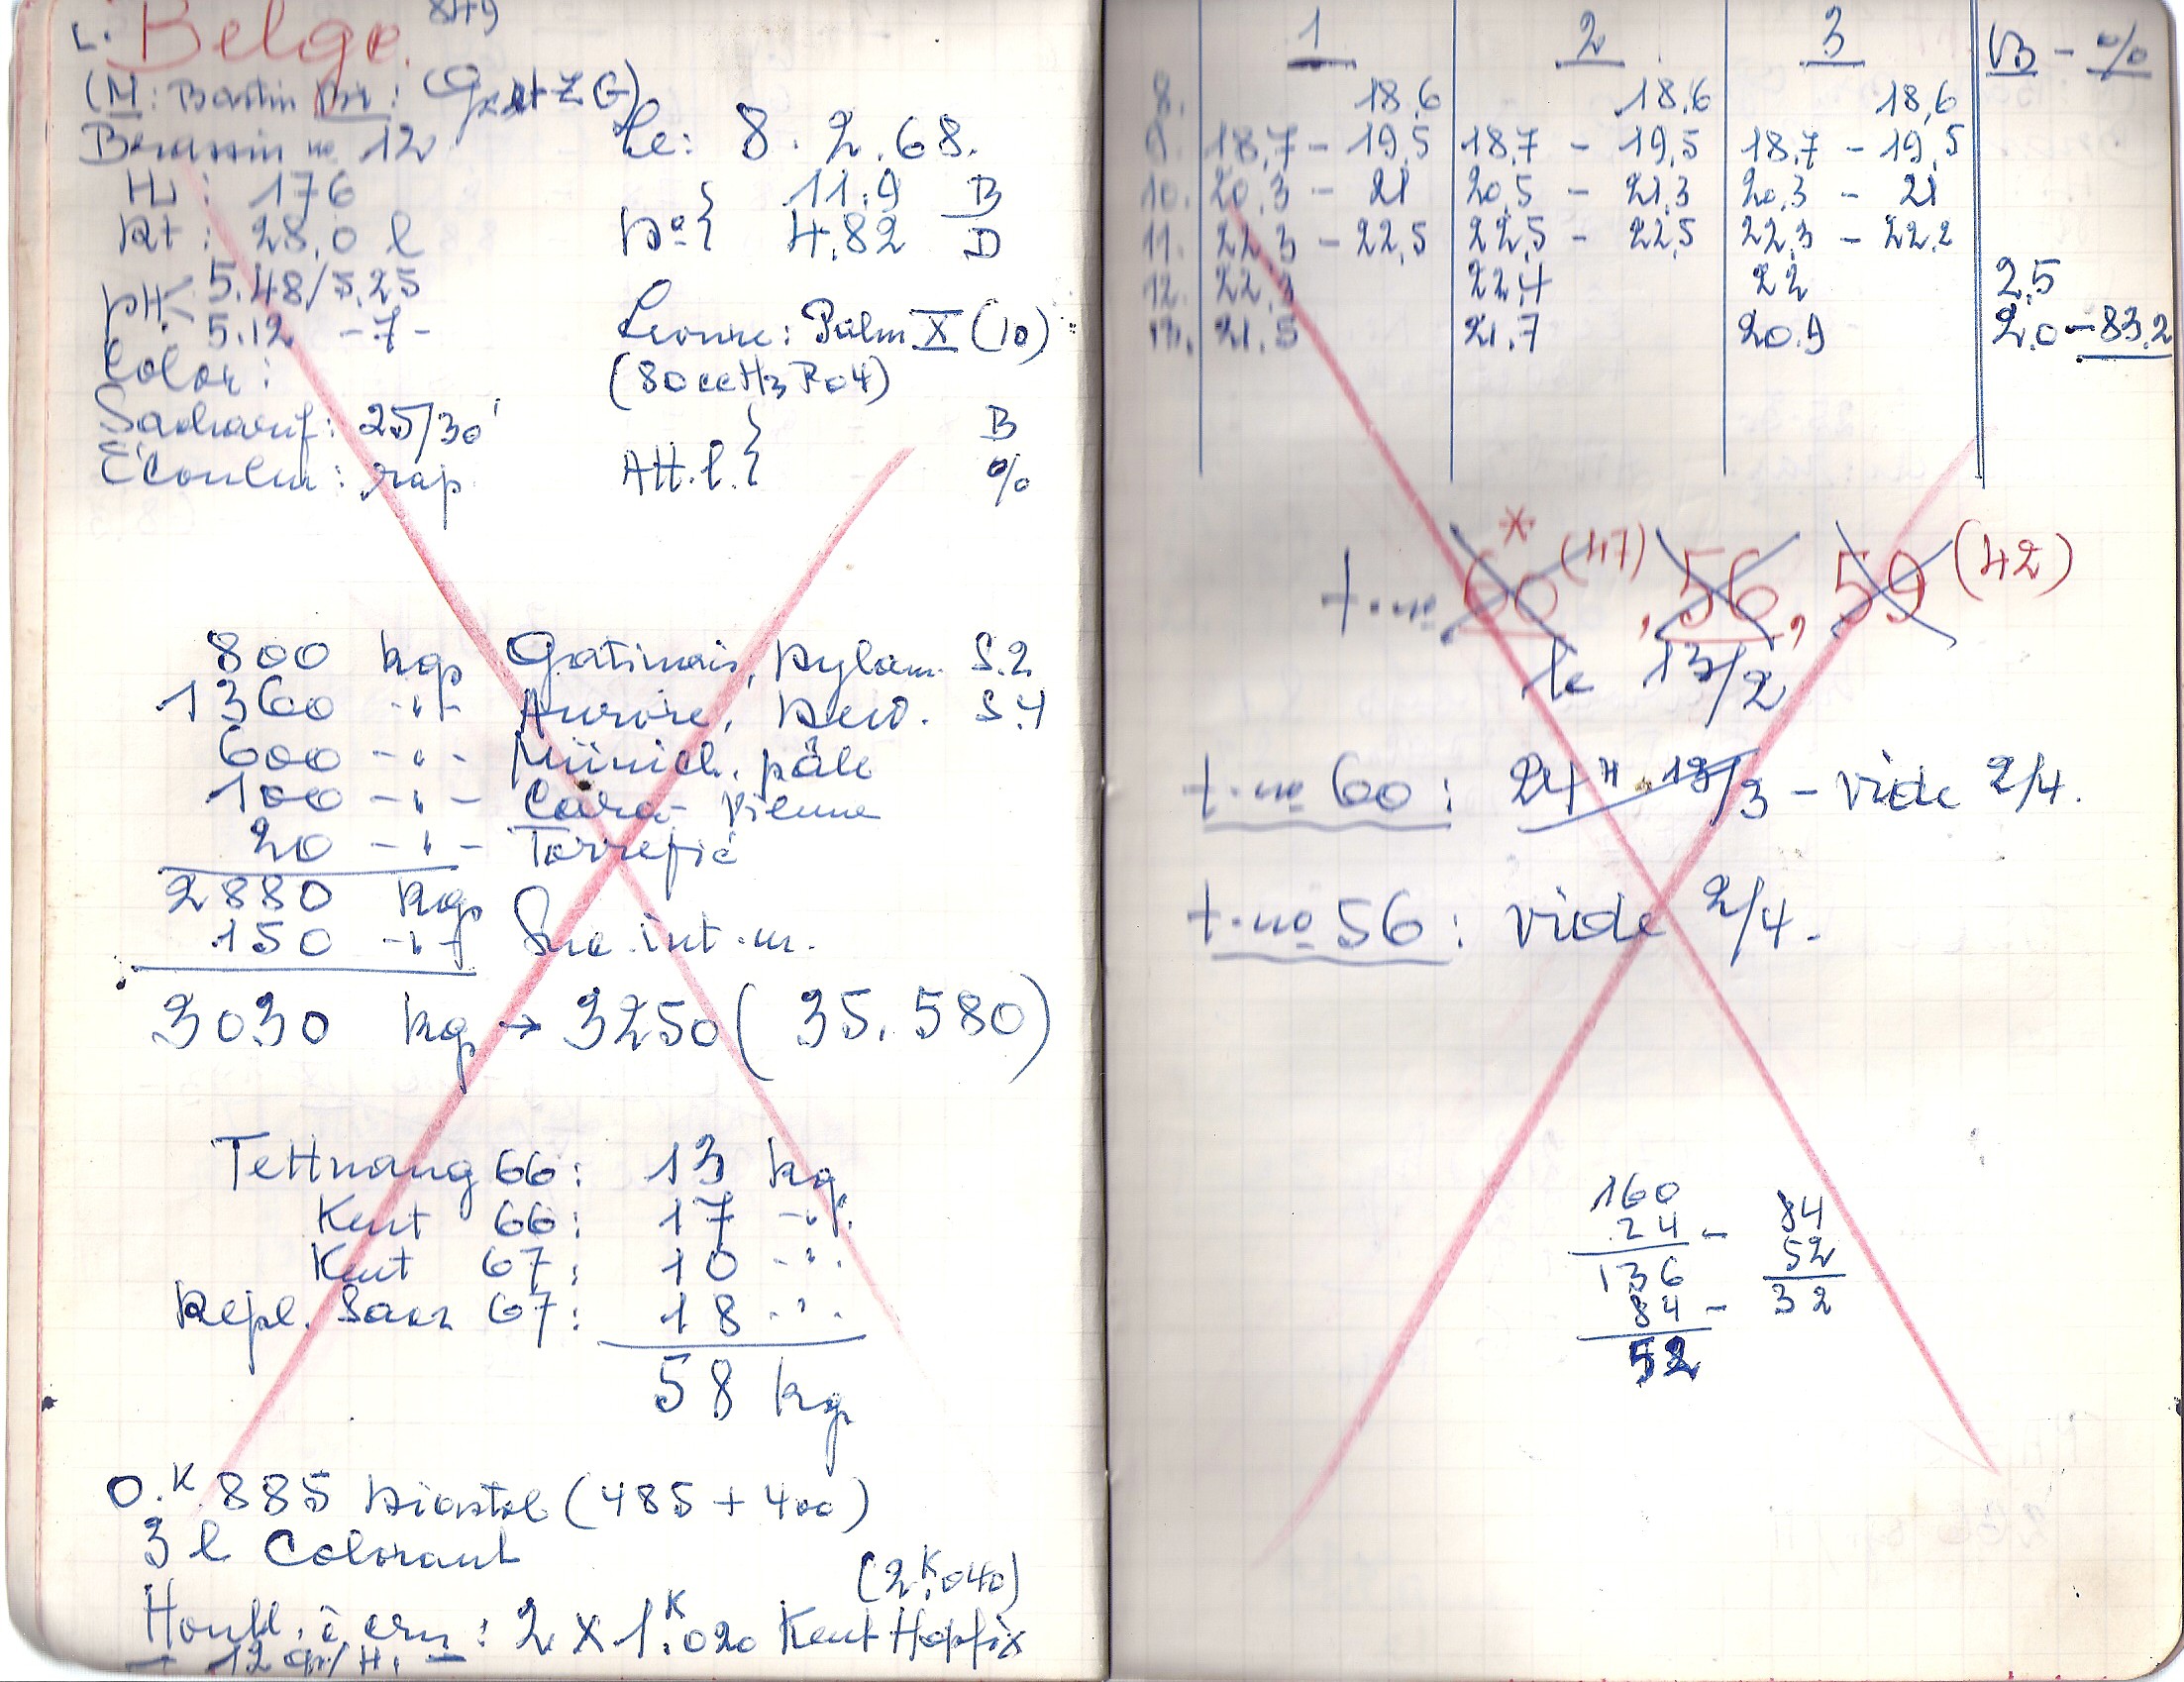 L. Belge. 849
(M: Bastin Dr: G
Brassin no 12 Le: 8.2.68.
HL: 176 11.9 B
Rt: 28,0 l Do } 4.82 D
pH: 5.48/5,25
5.12 -7- Levure: Pülm X (10)
Color: (80 cc H3 Po4)
Sacharif: 25/30' B
Ecoulem: rap. Att. l. } %
800 kg Gatinais, S.2
1360 -"- Aurore, S.4
600 -"- Münich. pâle
100 -"- Cara-Vienne
20 -"- Torrefié
2880 kg
150 -"- Suc. int. m.
3030 kg → 3250 (35.580)
Tettnang 66: 13 kg.
Kent 66: 17 -"-
Kent 67: 10 -"-
Repl. Saaz 67: 18 -"-
58 kg
0.K 885 Diastol (485 + 400)
3 l Colorant
(2.K 040)
Houbl. à cru: 2 x 1.K 020 Kent Hopfix
- 12 gr/H. -
1 2 3 VB - %
8. 18.6 18.6 18,6
9. 18,7 - 19,5 18.7 - 19,5 18,7 - 19,5
10. 20,3 - 21 20,5 - 21,3 20,3 - 21
11. 22,3 - 22,5 22,5 - 22,5 22,3 - 22,2
12. 22,3 22,4 22 2,5
13. 21,5 21,7 20,9 2,0 - 83.2
*
t. no 60 (47), 56, 59 (42)
le 13/2
t. no 60: 24 H. 13/3 - vide 2/4.
t. no 56: vide 2/4.
160
24 - 84
136 52
84 - 32
52